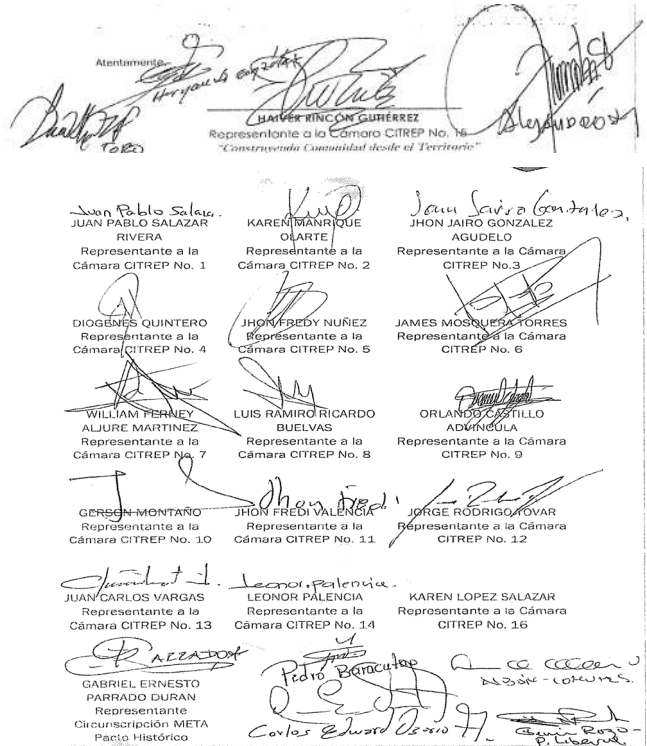 Atentamente,
HAIVER RINCÓN GUTIÉRREZ
Representante a la Cámara CITREP No. 15
"Construyendo Comunidad desde el Territorio"
TORO
Juan Pablo Salazar.
JUAN PABLO SALAZAR
RIVERA
Representante a la
Cámara CITREP No. 1
KAREN MANRIQUE
OLARTE
Representante a la
Cámara CITREP No. 2
Jhon Jairo Gonzalez.
JHON JAIRO GONZALEZ
AGUDELO
Representante a la Cámara
CITREP No.3
DIOGENES QUINTERO
Representante a la
Cámara CITREP No. 4
JHON FREDY NUÑEZ
Representante a la
Cámara CITREP No. 5
JAMES MOSQUERA TORRES
Representante a la Cámara
CITREP No. 6
WILLIAM FERNEY
ALJURE MARTINEZ
Representante a la
Cámara CITREP No. 7
LUIS RAMIRO RICARDO
BUELVAS
Representante a la
Cámara CITREP No. 8
ORLANDO CASTILLO
ADVINCULA
Representante a la Cámara
CITREP No. 9
GERSON MONTAÑO
Representante a la
Cámara CITREP No. 10
Jhon Fredi
JHON FREDI VALENCIA
Representante a la
Cámara CITREP No. 11
JORGE RODRIGO TOVAR
Representante a la Cámara
CITREP No. 12
JUAN CARLOS VARGAS
Representante a la
Cámara CITREP No. 13
Leonor.palencia.
LEONOR PALENCIA
Representante a la
Cámara CITREP No. 14
KAREN LOPEZ SALAZAR
Representante a la Cámara
CITREP No. 16
GABRIEL ERNESTO
PARRADO DURAN
Representante
Circunscripción META
Pacto Histórico
Pedro Baracutao
Carlos Edward Osorio
ALBÁN - COMUNES.
P. Liberal